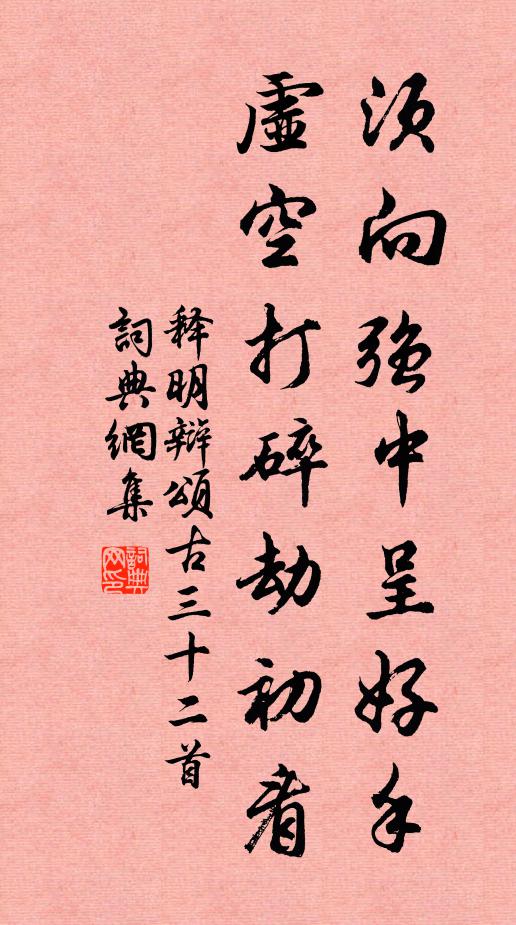 须向強中呈好手
虚空打碎劫初看
释明辩頌古三十二首
詞典網集
詞典网印